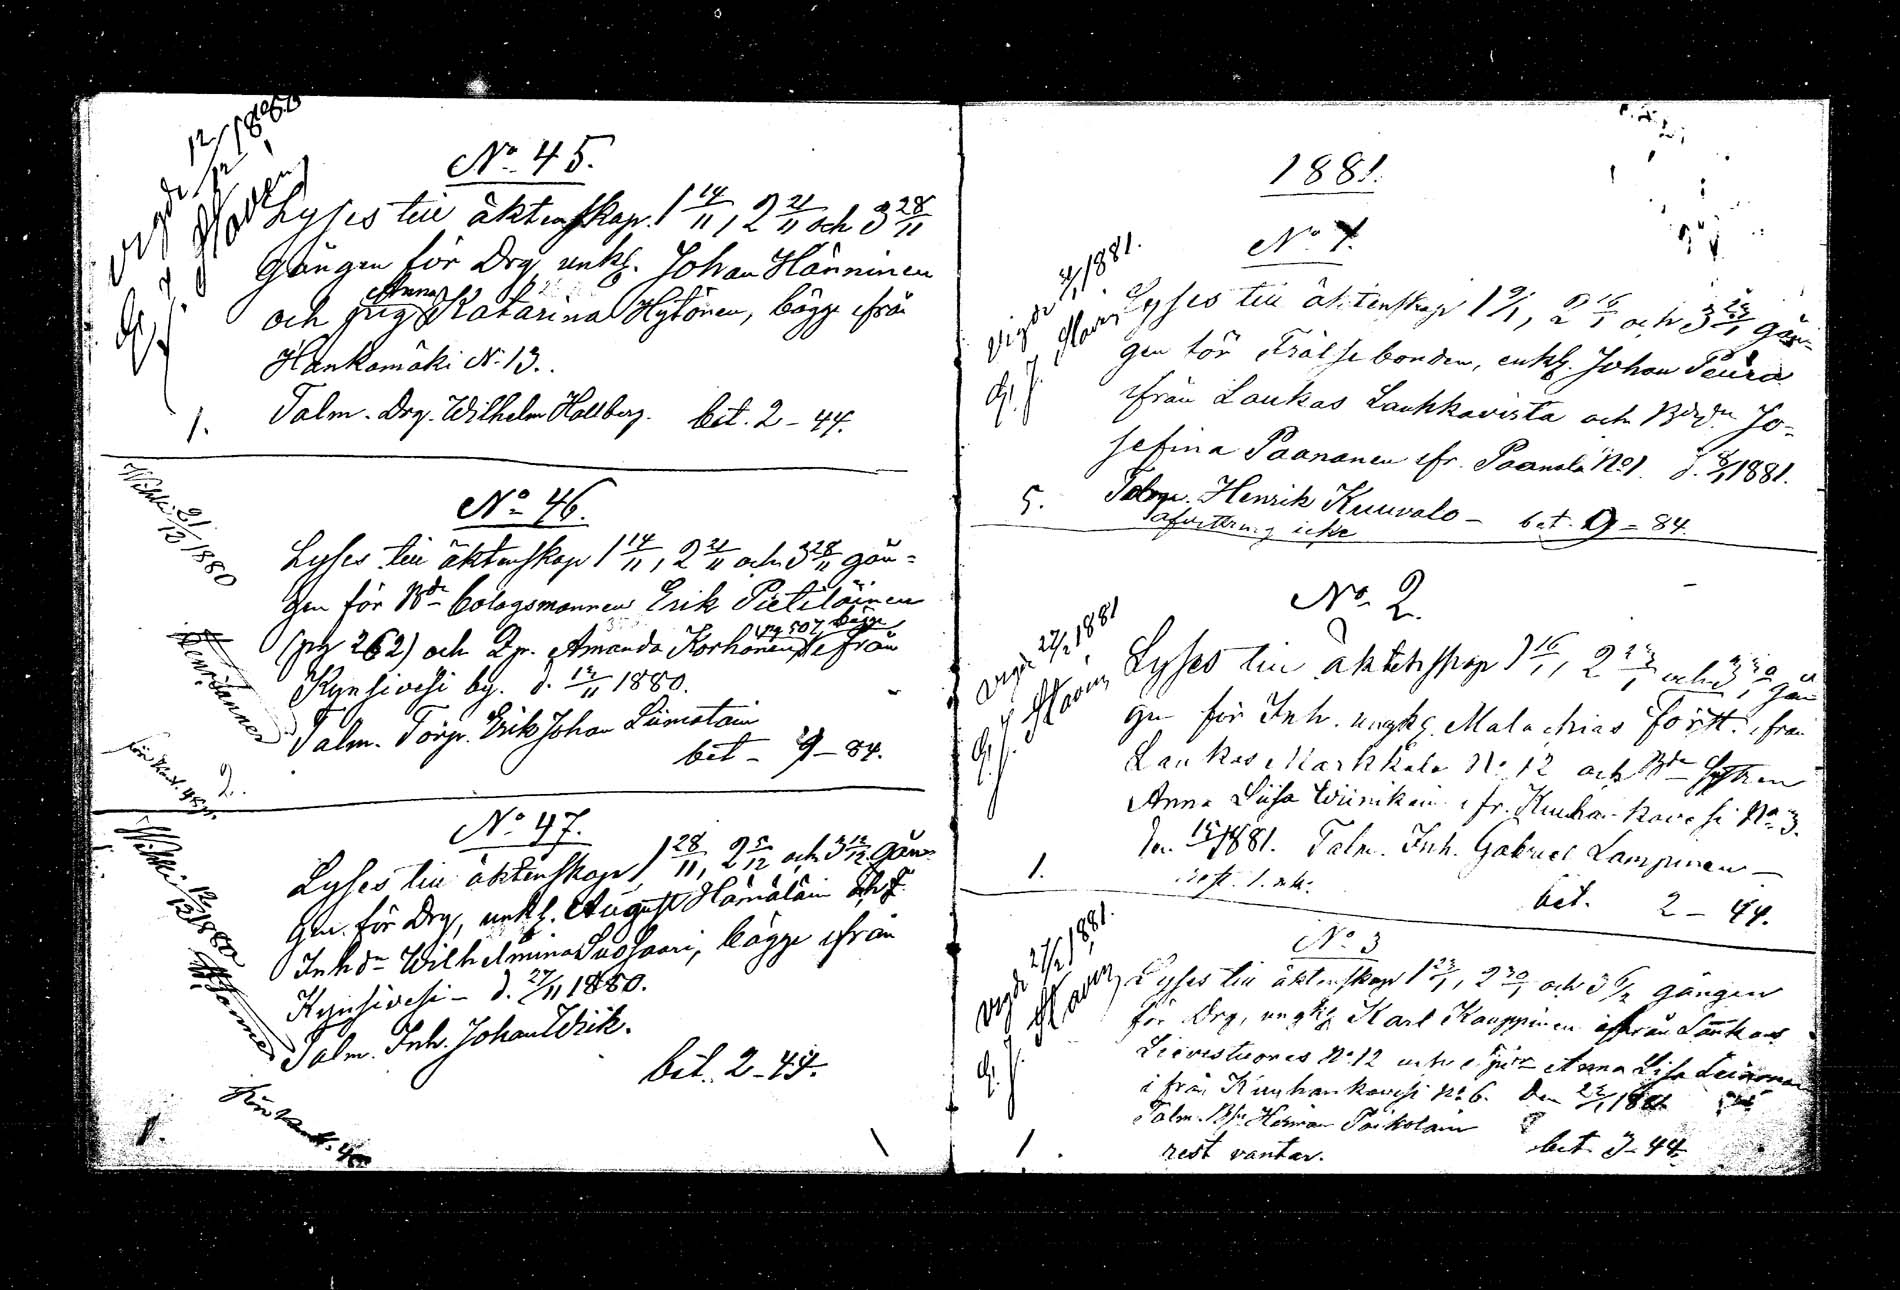 vigde 12/12 1880
G. J. Stavén
No 45.
Lyses till äktenskap 1 14/11, 2 21/11 och 3 28/11
gången för Drg, unkl. Johan Hänninen
och pig Anna Katarina Hytönen, bägge ifrån
Hankamäki N. 13.
1. Talm. Drg. Wilhelm Hallberg. bet. 2 – 44.
Wihki 21/12 1880
No 46.
Lyses till äktenskap 1 14/11, 2 21/11 och 3 28/11 gån=
gen för Bde bolagsmannen Erik Pietiläinen
(pg 262) och Dp. Amanda Korhonen, pag 507, bägge ifrån
Kynsivesi by. d. 12/11 1880.
Talm. Torp. Erik Johan Liimatain
2. bet – 9 – 84.
No 47.
Wihki 12/12 1880
Lyses till äktenskap 1 28/11, 2 5/12 och 3 12/12 gån=
gen för Drg, unkl. August Hämäläin och
Inhdn Wilhelmina Susisaari, bägge ifrån
Kynsivesi – d. 27/11 1880.
Talm. Inh. Johan Wiik.
bet. 2 – 44.
1.
1881.
No 1.
Vigde 30/1 1881.
G. J. Stavén
Lyses till äktenskap 1 9/1, 2 16/1 och 3 23/1 gån=
gen för Frälsebonden, enkl. Johan Peura
ifrån Laukas Laukkavirta och Bdrdn Jo=
sefina Paananen ifr. Paanala No 1. d. 8/1 1881.
5. Talm. Henrik Kuuvalo – bet. 9 – 84.
No 2.
vigde 27/2 1881
G. J. Stavén
Lyses till äktenskap 1 16/1, 2 23/1 och 3 30/1 gån
gen för Inh. ungkl. Malachias Fortt. ifrån
Laukas Markkala No 12 och Bde
Anna Liisa Wiinikain ifr. Kuuhankavesi No 3.
den 15/1 1881. Talm. Inh. Gabriel Lampinen –
1. bet. 2 – 44.
No 3
vigde 27/2 1881.
G. J. Stavén
Lyses till äktenskap 1 23/1, 2 30/1 och 3 6/2 gången
för Drg, ungkl Karl Kauppinen ifrån Laukas
Lievestuores No 12 och Anna Lisa Leinonen
ifrån Kuuhankavesi No 6. Den 22/1 1881
Talm. Herman Päikolain
1. rest vantar. bet. 2 – 44.